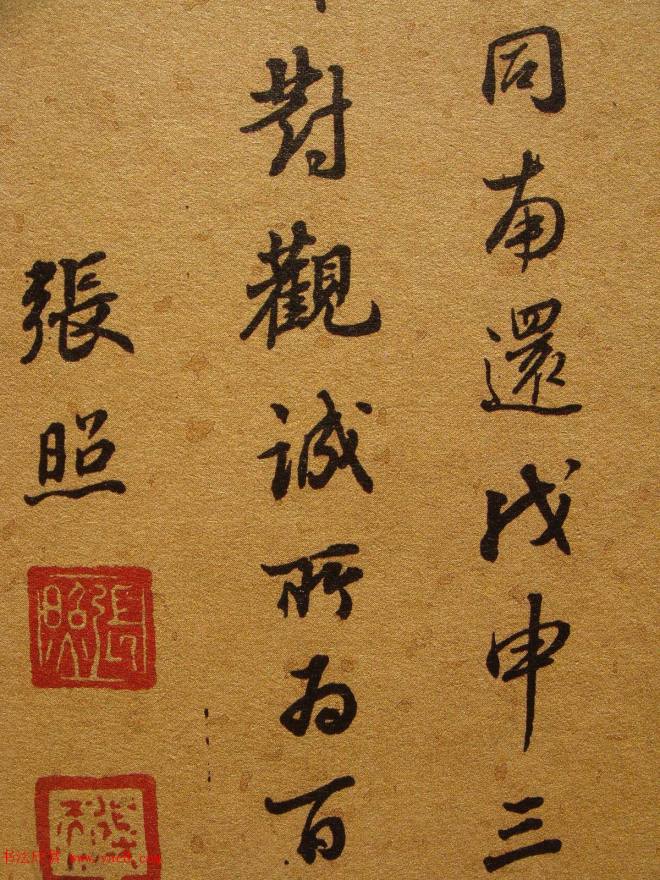 同南還戊申三
對觀誠所為百
張照
張照
书法欣赏 www.yac8.com